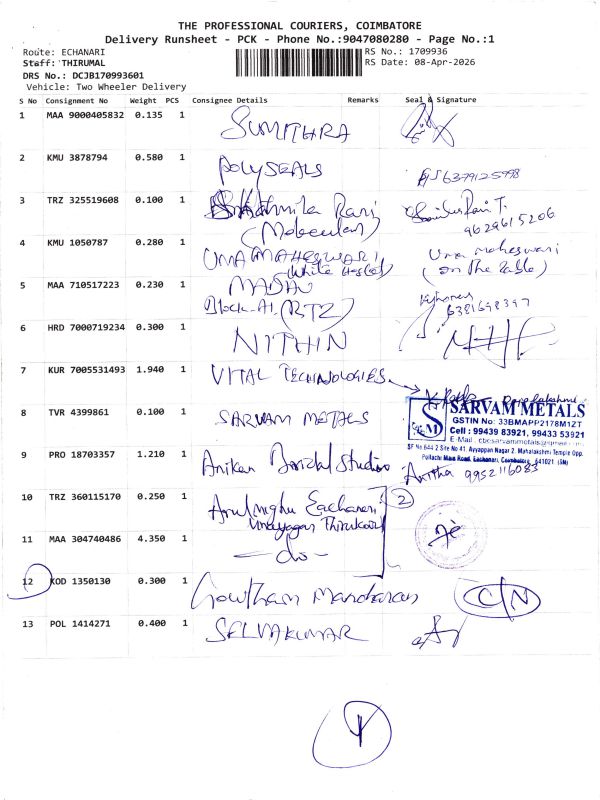 THE PROFESSIONAL COURIERS, COIMBATORE
Delivery Runsheet - PCK - Phone No.:9047080280 - Page No.:1
Route: ECHANARI
RS No.: 1709936
Staff: THIRUMAL
RS Date: 08-Apr-2026
DRS No.: DCJB170993601
Vehicle: Two Wheeler Delivery
S No Consignment No Weight PCS Consignee Details Remarks Seal & Signature
1 MAA 9000405832 0.135 1 SUMITHRA
2 KMU 3878794 0.580 1 POLYSEALS 6379125998
3 TRZ 325519608 0.100 1 Rani
(Molecular) 9629615206
4 KMU 1050787 0.280 1 UMA MAHESWARI Uma maheswari
(White Hostel) (on The table)
5 MAA 710517223 0.230 1 MADAV
Block-A1, (BTZ) 6381698397
6 HRD 7000719234 0.300 1 NITHIN
7 KUR 7005531493 1.940 1 VITAL TECHNOLOGIES
8 TVR 4399861 0.100 1 SARVAM METALS
SARVAM METALS
GSTIN No: 33BMAPP2178M1ZT
Cell : 99439 83921, 99433 53921
E-Mail : cbesarvammetals@gmail.com
SF No 644 2 Site No 41, Ayyappan Nagar 2, Mahalakshmi Temple Opp.
Pollachi Main Road, Eachanari, Coimbatore 641021 (SM)
9 PRO 18703357 1.210 1 Studio Anitha 9952116083
10 TRZ 360115170 0.250 1 Arulmighu Eachanari 2
Vinayagar Thirukovil
11 MAA 304740486 4.350 1 -do-
12 KOD 1350130 0.300 1 Gowtham Manoharan C/N
13 POL 1414271 0.400 1 SELVAKUMAR